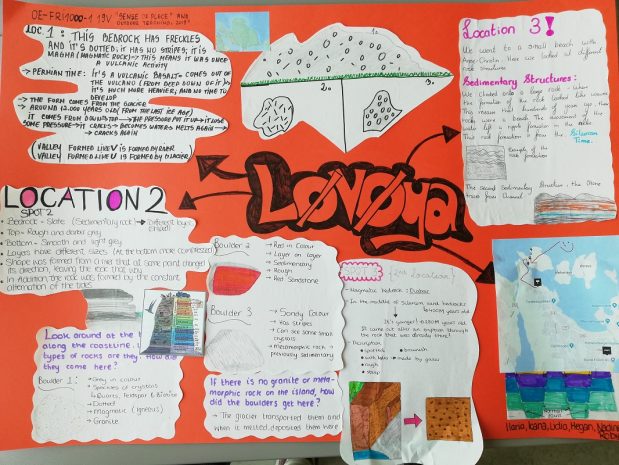 OE-FRI1000-1 19V "SENSE OF PLACE" AND
OUTDOOR TEACHING, 2019"
LOC. 1: THIS BEDROCK HAS FRECKLES
AND IT'S DOTTED, IT HAS NO STRIPES; IT IS
MAGMA (MAGMATIC ROCK) → THIS MEANS IT WAS ONCE
A VULCANIC ACTIVITY
→ PERMIAN TIME: IT'S A VULCANIC BASALT → COMES OUT OF
THE VULCANO (FROM DEEP DOWN OF IT)
IT'S MUCH MORE HEAVIER, AND NO TIME TO
DEVELOP
→ THE FORM COMES FROM THE GLACIER
→ AROUND 12.000 YEARS OLD (FROM THE LAST ICE AGE)
IT COMES FROM DOWNSTAIRS → THE PRESSURE PUT IT UP → IT LOSE
SOME PRESSURE → IT CRACKS → BECOMES WATERS MELTS AGAIN
→ CRACKS AGAIN
VALLEY FORMED LIKE V IS FORMED BY RIVER
VALLEY FORMED LIKE U IS FORMED BY GLACIER
1.
2.
3.
Location 3!
We went to a small beach with
Anne-Christin. Here we looked at different
rock structures.
Sedimentary Structures:
We climbed onto a large rock - when
the formation of the rock looked like waves
This means that hundreds of years ago, these
rocks were a beach. The movement of the
water left a ripple formation in the rocks.
This rock formation is from the Silurian
Time.
Example of the
rock formation
The second Sedimentary Structure: the Stone
Løvøya
LOCATION 2
SPOT 2
- Bedrock - Slate (Sedimentary rock → Different layers
- Top - Rough and darker grey
- Bottom - Smooth and light grey
- Layers have different sizes (At the bottom more compressed)
- Shape was formed from a river that at some point changed
its direction, leaving the rock that way
- In Addition the rock was formed by the constant
alternation of the tides
Look around at the
along the coastline.
types of rocks are they? How did
they come here?
Boulder 1:
→ Grey in colour
→ Speckles of crystals
↳ Quartz, feldspar & Biotite
→ Dotted
→ magmatic (igneous)
→ Granite
Boulder 2
→ Red in Colour
→ Layer on layer
→ Sedimentary
→ Rough
→ Red Sandstone
Boulder 3
→ Sandy Colour
→ Has stripes
→ Can see some small
crystals
→ Metamorphic rock →
previously sedimentary
If there is no granite or meta-
morphic rock on the island, how
did the boulders get here?
→ The glacier transported them and
when it melted deposited them here
(2nd Location)
- Magmatic bedrock:
In the middle of silurian sand bedrock:
It's younger!
It came out after an eruption through
the rock that was already there!
Description:
• spotted
• brownish
• with holes → made by gases
• rough
Ilaria, Ioana, Lidia, Megan, Nadine